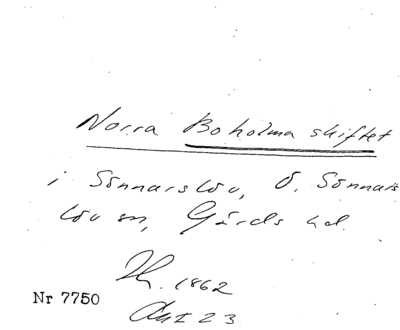 Norra Boholma skiftet
i Sönnarslöv, Ö. Sönnars
löv sn, Gärds hd.
1862
Nr 7750
23